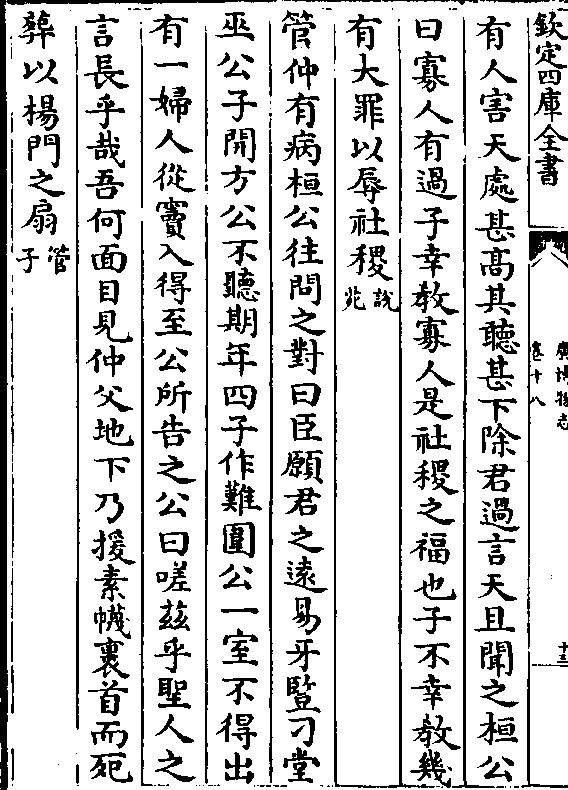 欽定四庫全書
廣博物志
卷十八
十三
有人害天處甚髙其聽甚下除君過言天且聞之桓公
曰寡人有過子幸教寡人是社稷之福也子不幸教幾
有大罪以辱社稷說苑
管仲有病桓公往問之對曰臣願君之逺易牙豎刁堂
巫公子開方公不聽期年四子作難圍公一室不得出
有一婦人從竇入得至公所告之公曰嗟兹乎聖人之
言長乎哉吾何面目見仲父地下乃援素幭裹首而死
葬以楊門之扇管子